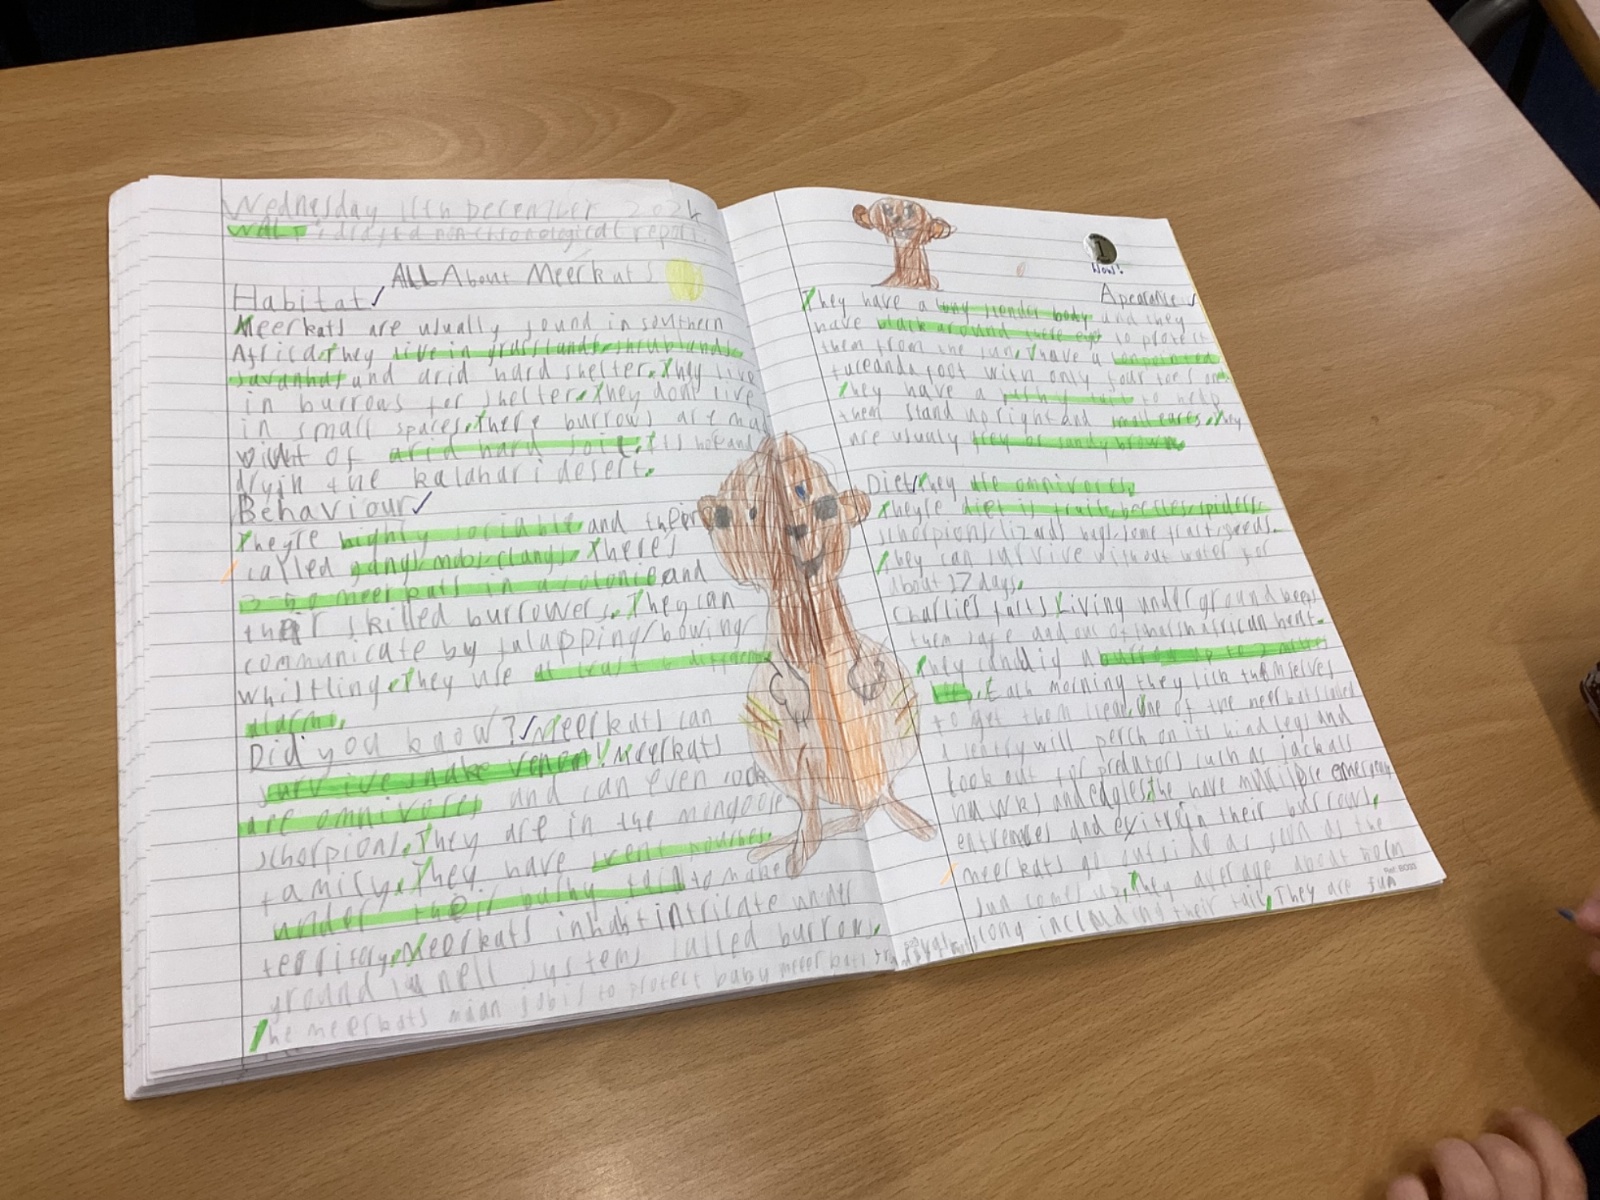 Wednesday 11th December 2024
WALT: draft a non-chronological report.
All About Meerkats
Habitat
Meerkats are usually found in southern
Africa. They live in grasslands, shrublands,
savanhas and arid hard shelter. They live
in burrows for shelter. They dont live
in small spaces. There burrows are mad
out of arid hard soil. Its hot and
dry in the kalahari desert.
Behaviour
Theyre highly sociable and their
called gangs, mobs, clangs. Theres
3-50 meerkats in a colonie and
their skilled burrowers. They can
communicate by
whistling. They use at least 6 different
alarms.
Did you know? Meerkats can
survive snake venom! Meerkats
are omnivores and can even
schorpions. They are in the mongoose
family. They have scent pouches
under their bushy tail to make
territory. Meerkats inhabit intricate under
ground tunnell systems called burrows.
The meerkats maan job is to protect baby meerkats from
1
Wow!
Apearance
They have a long slender body and they
have black around there eyes to protect
them from the sun. have a
face and a foot with only four toes on.
They have a bushy tail to help
them stand upright and small eares. They
are usualy grey or sandy brown
Diet They are omnivores.
Theyre diet is fruits, beetles, spiders,
schorpions/lizards bugs, some fruit, seeds.
They can survive without water for
about 17 days.
Charlie's facts Living underground keeps
them safe and out of the harsh african heat.
They can dig a burrow up to 2 metres
Each morning they lick themselves
to get them clean. One of the meerkats called
a sentry will perch on its hind legs and
look out for predators such as jackals
hawks and eagles. the have multiple emergency
entrences and exits in their burrows.
meerkats go outside as soon as the
sun comes up. They average about
long including their tail. They are fun